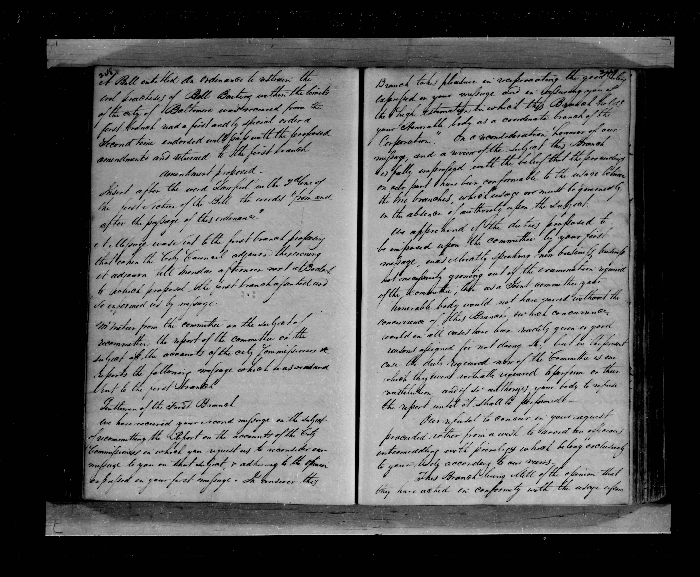 A Bill entitled An Ordinance to restrain the
evil practices of Bell Baiting within the limits
of the city of Baltimore was received from the
first branch read a first and by special order a
second time endorsed will pass with the proposed
amendments and returned to the first branch
amendment proposed.
Insert after the word Lawful in the 2d line of
the first section of the Bill the words "from and
after the passage of this ordinance"
A message was sent to the first branch proposing
that when the City Council adjourn this evening
it adjourn till Monday afternoon next 4 O'clock
to which proposal the first branch assented and
so informed us by message.
from the committee on the subject of
recommitting the report of the committee on the
subject of the accounts of the city Commissioners &c
reports the following message which was read and
sent to the first Branch
Gentlemen of the First Branch
We have received your second message on the subject
of recommitting the Report on the accounts of the City
Commissioners in which you request us to reconsider our
message to you on that subject, & adhering to the opinion
expressed in your first message. In answer this
Branch takes pleasure in reciprocating the good feeling
expressed in your message and in assuring you of
the high estimation in which this Branch holds
your Honorable body as a coordinate branch of the
Corporation. On a reconsideration however of our
message, and a review of the subject this Branch
is fully impressed with the belief that the proceedings
on our part have been conformable to the usage between
the two branches, which usage we must be governed by
in the absence of authority upon the subject.
We apprehend if the duties proposed to
be imposed upon the committee by your first
message, was strictly speaking new business
not necessarily growing out of the examination required
of the Committee, that as a Joint committee your
honorable body would not have passed without the
concurrence of this Branch, in which concurrence
would in all cases have been readily given or good
reasons assigned for not doing so, but in the present
case the duty required now of the Committee is one
which they were virtually required to perform on their
institution and if so authorizes your body to refuse
the report until it shall be performed.
Our refusal to concur in your request
proceeded rather from a wish to avoid an
intermeddling with privileges which belong exclusively
to your body according to our views.
This Branch being still of the opinion that
they have acted in conformity with the usage